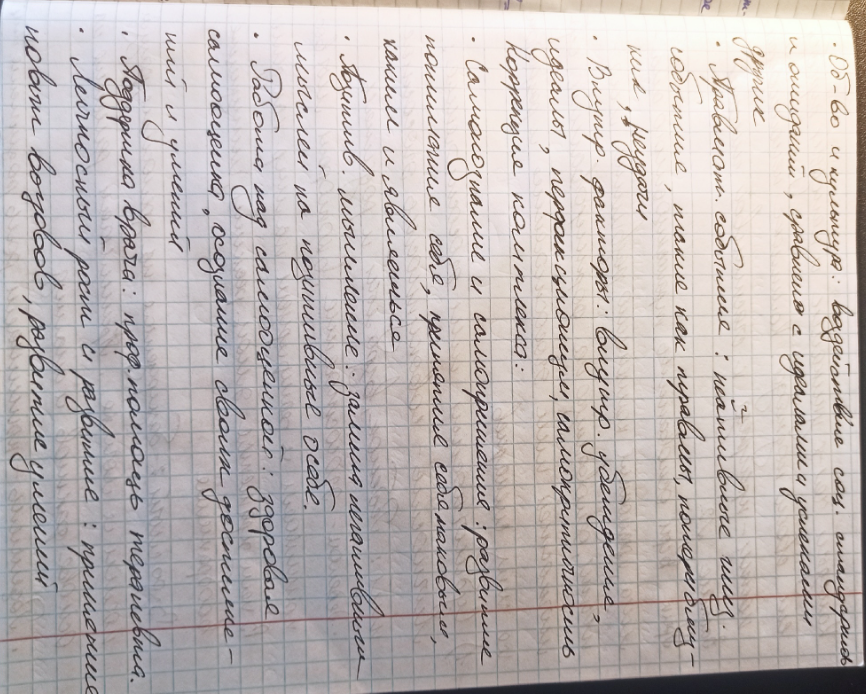 · Об-во и культура: воздействие соц. стандартов
и ожиданий, сравнение с идеалами и успехами
других
· Травмат. события: негативные жиз.
события, такие как травмы, потери, обму-
ния, неудачи
· Внутр. факторы: внутр. убеждения,
идеалы, перфекционизм, самокритичность
Коррекция комплекса:
· Самопознание и самопринятие: развитие
понимание себя, принятие себя таковым,
каким и являешься
· Позитив. мышление: замена негативных
мыслей на позитивные о себе.
· Работа над самооценкой: здоровая
самооценка, создание своих достиже-
ний и умений
· Поддержка врача: проф. помощь терапевта.
· Личностный рост и развитие: принятие
новых вызовов, развитие умений